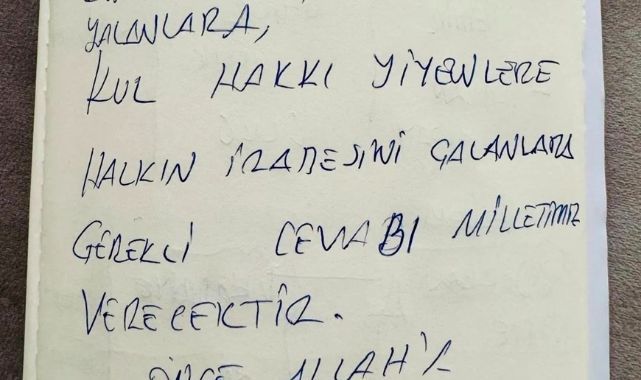 YALANLARA,
KUL HAKKI YİYENLERE
HALKIN İRADESİNİ ÇALANLARA
GEREKLİ CEVABI MİLLETİMİZ
VERECEKTİR.
ÖNCE ALLAH'A